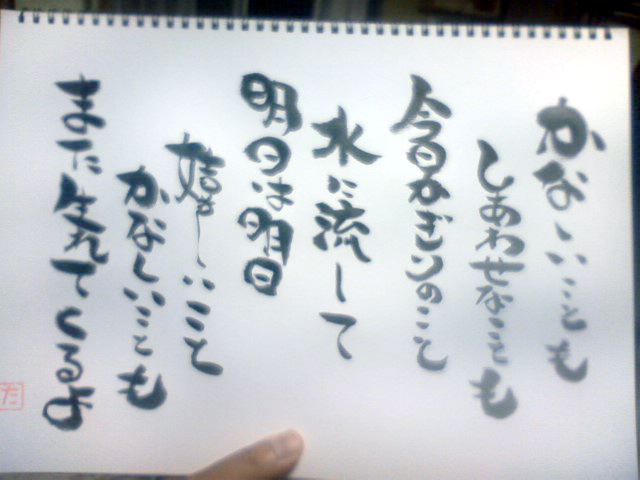 かなしいことも
しあわせなことも
今日かぎりのこと
水に流して
明日は明日
嬉しいこと
かなしいことも
また生れてくるよ
だ